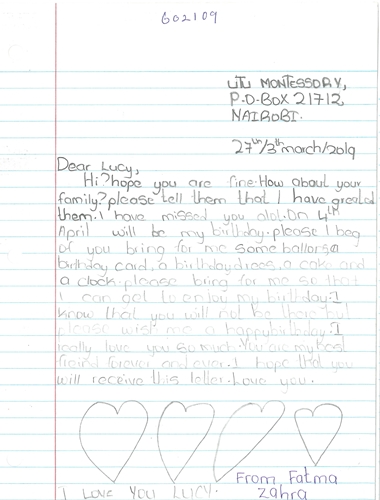 602109
UTU MONTESSORY,
P.O.BOX 21712,
NAIROBI.
27th/3th march/2019
Dear Lucy,
Hi?hope you are fine.How about your
family?please tell them that I have greated
them.I have missed you alot.On 4th
April will be my birthday.please I beg
of you bring for me some ballons,a
birthday card, a birthdaydress, a cake and
a clock.please bring for me so that
I can get to enjoy my birthday.I
know that you will not be there but
please wish me a happybirthday.I
really love you so much.You are my best
freind forever and ever.I hope that you
will receive this letter.Love you.
From Fatma
zahra
I LOVE YOU LUCY.